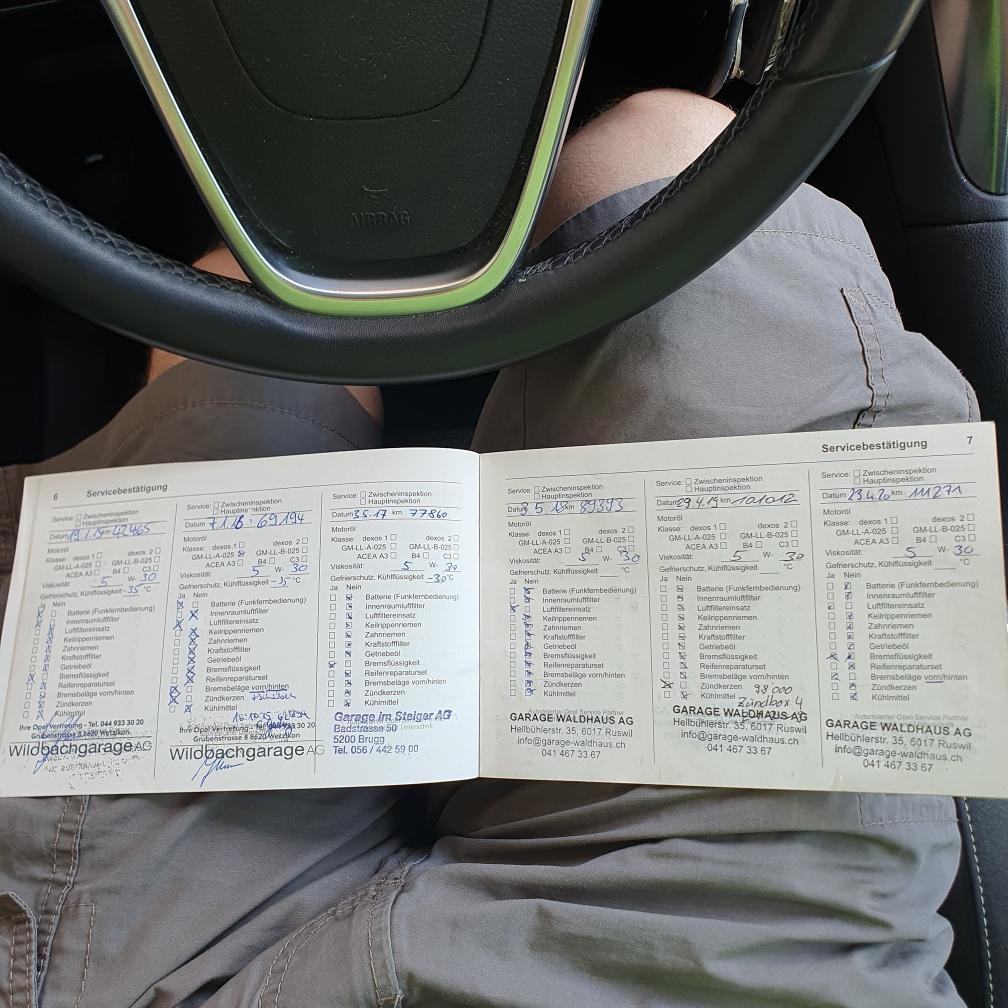 AIRBAG
6 Servicebestätigung
Service: Zwischeninspektion
Hauptinspektion
Datum 19.1.15 km 42465
Motoröl
Klasse: dexos 1 dexos 2
GM-LL-A-025 GM-LL-B-025
ACEA A3 B4 C3
Viskosität: 5 W- 30
Gefrierschutz, Kühlflüssigkeit -35 °C
Ja Nein
Batterie (Funkfernbedienung)
Innenraumluftfilter
Luftfiltereinsatz
Keilrippenriemen
Zahnriemen
Kraftstofffilter
Getriebeöl
Bremsflüssigkeit
Reifenreparaturset
Bremsbeläge vorn/hinten
Zündkerzen
Kühlmittel
Ihre Opel Vertretung - Tel. 044 933 30 20
Grubenstrasse 8 8620 Wetzikon
Wildbachgarage AG
Service: Zwischeninspektion
Hauptinspektion
Datum 7.1.16 69194
Motoröl
Klasse: dexos 1 dexos 2
GM-LL-A-025 GM-LL-B-025
ACEA A3 B4 C3
Viskosität: 5 W- 30
Gefrierschutz, Kühlflüssigkeit -35 °C
Ja Nein
Batterie (Funkfernbedienung)
Innenraumluftfilter
Luftfiltereinsatz
Keilrippenriemen
Zahnriemen
Kraftstofffilter
Getriebeöl
Bremsflüssigkeit
Reifenreparaturset
Bremsbeläge vorn/hinten
Zündkerzen
Kühlmittel
Ihre Opel Vertretung - Tel.
Grubenstrasse 8 8620 Wetzikon
Wildbachgarage AG
Service: Zwischeninspektion
Hauptinspektion
Datum 3.5.17 km 77860
Motoröl
Klasse: dexos 1 dexos 2
GM-LL-A-025 GM-LL-B-025
ACEA A3 B4 C3
Viskosität: 5 W- 30
Gefrierschutz, Kühlflüssigkeit -30 °C
Ja Nein
Batterie (Funkfernbedienung)
Innenraumluftfilter
Luftfiltereinsatz
Keilrippenriemen
Zahnriemen
Kraftstofffilter
Getriebeöl
Bremsflüssigkeit
Reifenreparaturset
Bremsbeläge vorn/hinten
Zündkerzen
Kühlmittel
Garage im Steiger AG
Badstrasse 50
5200 Brugg
Tel. 056 / 442 59 00
Servicebestätigung 7
Service: Zwischeninspektion
Hauptinspektion
Datum 5 18 km 89393
Motoröl
Klasse: dexos 1 dexos 2
GM-LL-A-025 GM-LL-B-025
ACEA A3 B4 C3
Viskosität: 5 W- 30
Gefrierschutz, Kühlflüssigkeit °C
Ja Nein
Batterie (Funkfernbedienung)
Innenraumluftfilter
Luftfiltereinsatz
Keilrippenriemen
Zahnriemen
Kraftstofffilter
Getriebeöl
Bremsflüssigkeit
Reifenreparaturset
Bremsbeläge vorn/hinten
Zündkerzen
Kühlmittel
Autorisierter Opel Service Partner
GARAGE WALDHAUS AG
Hellbühlerstr. 35, 6017 Ruswil
info@garage-waldhaus.ch
041 467 33 67
Service: Zwischeninspektion
Hauptinspektion
Datum 29.4.19 km 101012
Motoröl
Klasse: dexos 1 dexos 2
GM-LL-A-025 GM-LL-B-025
ACEA A3 B4 C3
Viskosität: 5 W- 30
Gefrierschutz, Kühlflüssigkeit °C
Ja Nein
Batterie (Funkfernbedienung)
Innenraumluftfilter
Luftfiltereinsatz
Keilrippenriemen
Zahnriemen
Kraftstofffilter
Getriebeöl
Bremsflüssigkeit
Reifenreparaturset
Bremsbeläge vorn/hinten
Zündkerzen 98000
Kühlmittel Zündbox 4
GARAGE WALDHAUS AG
Hellbühlerstr. 35, 6017 Ruswil
info@garage-waldhaus.ch
041 467 33 67
Service: Zwischeninspektion
Hauptinspektion
Datum 23.4.20 km 111271
Motoröl
Klasse: dexos 1 dexos 2
GM-LL-A-025 GM-LL-B-025
ACEA A3 B4 C3
Viskosität: 5 W- 30
Gefrierschutz, Kühlflüssigkeit °C
Ja Nein
Batterie (Funkfernbedienung)
Innenraumluftfilter
Luftfiltereinsatz
Keilrippenriemen
Zahnriemen
Kraftstofffilter
Getriebeöl
Bremsflüssigkeit
Reifenreparaturset
Bremsbeläge vorn/hinten
Zündkerzen
Kühlmittel
Autorisierter Opel Service Partner
GARAGE WALDHAUS AG
Hellbühlerstr. 35, 6017 Ruswil
info@garage-waldhaus.ch
041 467 33 67